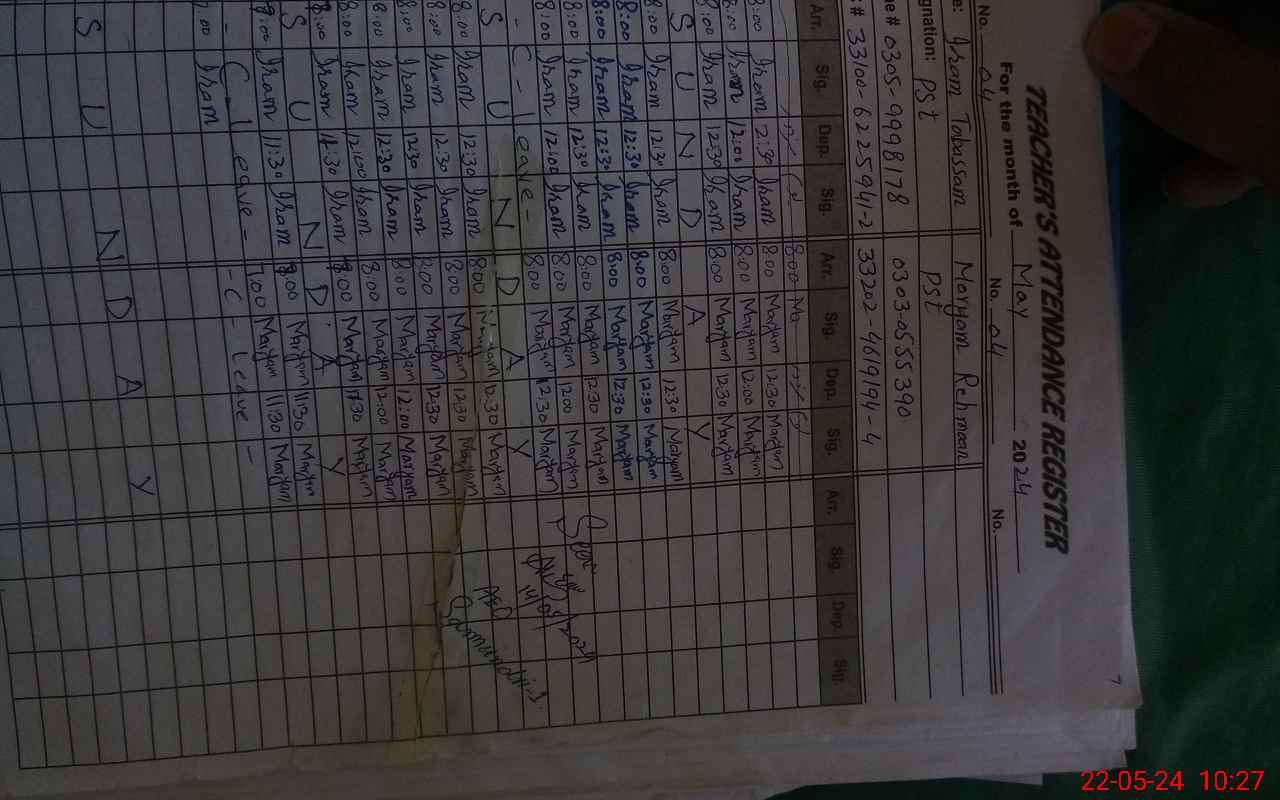 7
TEACHER'S ATTENDANCE REGISTER
For the month of May 2024
No. 04 No. 04 No.
Iram Tabussam Maryam Rehman
gnation: PSt PSt
0305-9998178 0303-0555390
33100-6225941-2 33202-4619194-4
Arr. Sig. Dep. Sig. Arr. Sig. Dep. Sig. Arr. Sig. Dep. Sig.
8:00
8:00 Iram 2:30 Iram 8:00 Maryam 12:30 Maryam
8:00 Iram 12:00 Iram 8:00 Maryam 12:00 Maryam
8:00 Iram 12:30 Iram 8:00 Maryam 12:30 Maryam
S U N D A Y
8:00 Iram 12:30 Iram 8:00 Maryam 12:30 Maryam
8:00 Iram 12:30 Iram 8:00 Maryam 12:30 Maryam
8:00 Iram 12:30 Iram 8:00 Maryam 12:30 Maryam
8:00 Iram 12:30 Iram 8:00 Maryam 12:30 Maryam
8:00 Iram 12:00 Iram 8:00 Maryam 12:00 Maryam
- C - Leave - 8:00 Maryam 12:30 Maryam
S U N D A Y
8:00 Iram 12:30 Iram 8:00 12:30 Maryam
8:00 Iram 12:30 Iram 8:00 Maryam 12:30 Maryam
8:00 Iram 12:30 Iram 8:00 Maryam 12:30 Maryam
8:00 Iram 12:30 Iram 8:00 Maryam 12:00 Maryam
8:00 Iram 12:00 Iram 8:00 Maryam 12:00 Maryam
8:00 Iram 11:30 Iram 8:00 Maryam 11:30 Maryam
S U N D A Y
Iram 11:30 Iram 8:00 Maryam 11:30 Maryam
- C - Leave - 7:00 Maryam 11:30 Maryam
7:00 Iram - C - Leave -
S U N D A Y
Seen
AEO
Samundri-I
22-05-24 10:27